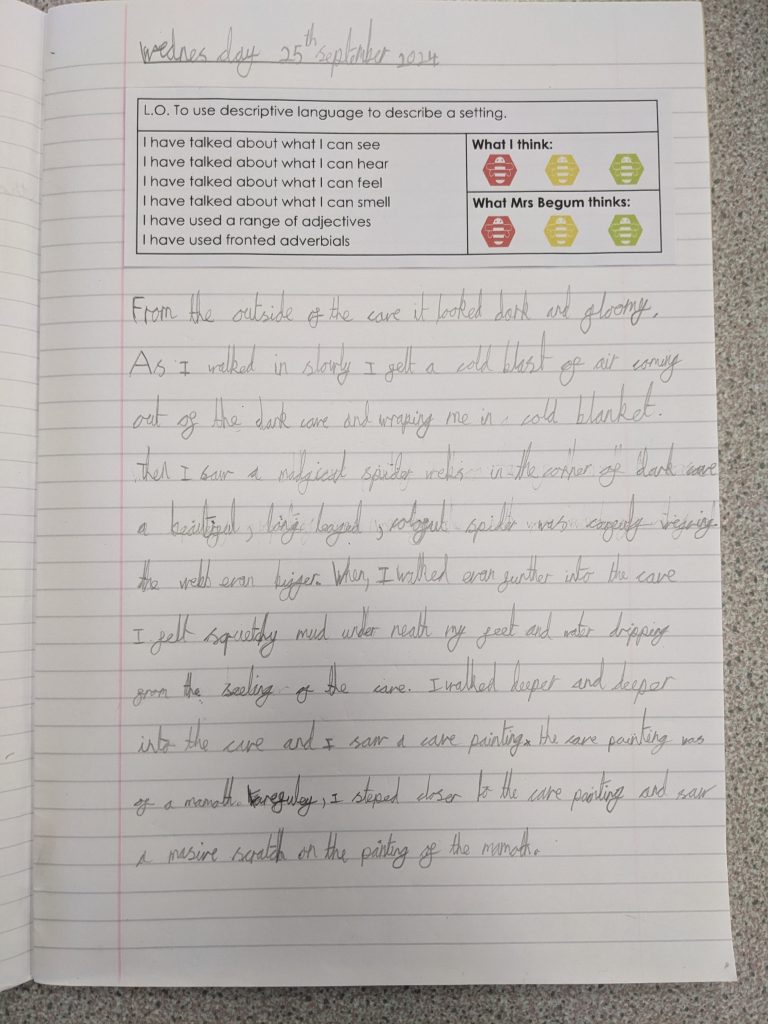 Wednesday 25th september 2024
L.O. To use descriptive language to describe a setting.
I have talked about what I can see
I have talked about what I can hear
I have talked about what I can feel
I have talked about what I can smell
I have used a range of adjectives
I have used fronted adverbials
What I think:
What Mrs Begum thinks:
From the outside of the cave it looked dark and gloomy.
As I walked in slowly I felt a cold blast of air coming
out of the dark cave and wraping me in a cold blanket.
then I saw a madgical spider webs in the corner of dark cave
a beautiful, long leged, spider was
the webb evan bigger. When, I walked evan further into the cave
I felt squetchy mud under neath my feet and water dripping
from the seeling of the cave. I walked deeper and deeper
into the cave and I saw a cave painting. the cave painting was
of a mamoth. , I steped closer to the cave painting and saw
a masive scratch on the painting of the mamoth.